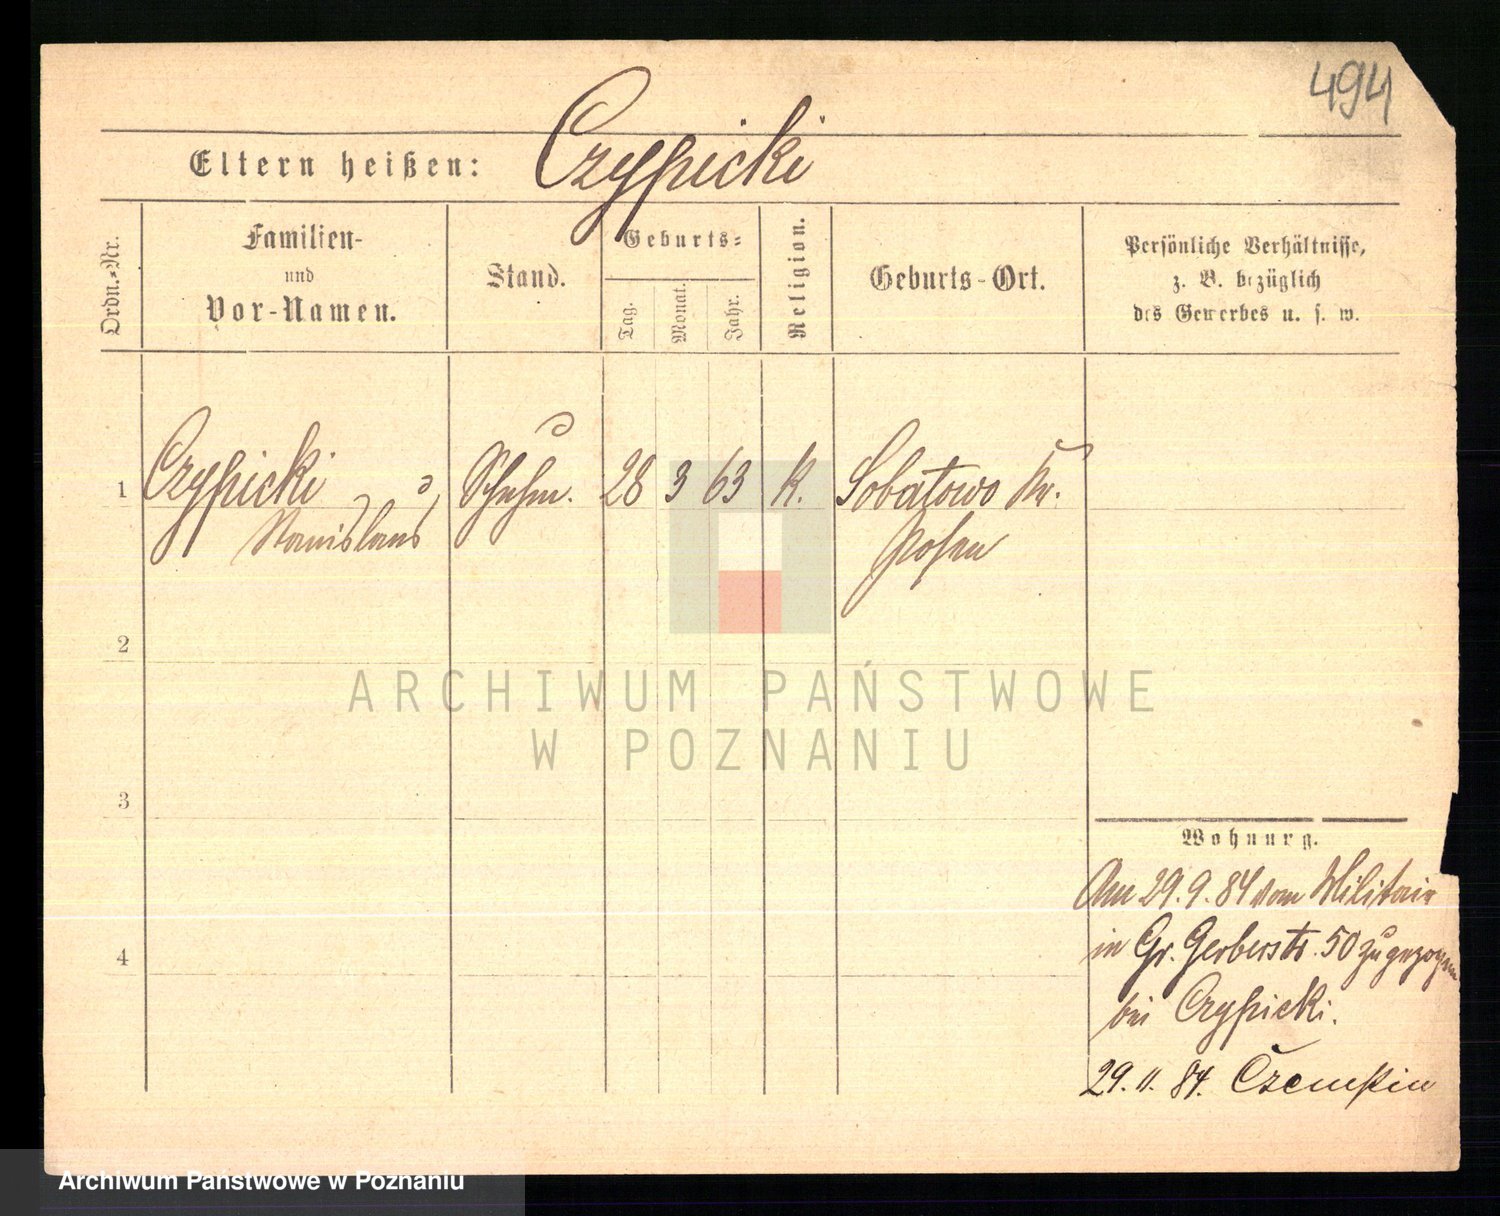 494
Eltern heißen: Czypicki
Ordn.-Nr.
Familien-
und
Vor-Namen.
Stand.
Geburts-
Tag.
Monat.
Jahr.
Religion.
Geburts-Ort.
Persönliche Verhältnisse,
z. B. bezüglich
des Gewerbes u. s. w.
1 Czypicki Schuhm. 28 3 63 K. Sobatowo Kr.
Stanislaus Posen
2
3
4
Wohnung.
Am 29.9.84 vom Militair
in Gr. Gerberstr. 50 zugezogen
bei Czypicki.
29.11.84. Czempin
ARCHIWUM PAŃSTWOWE
W POZNANIU
Archiwum Państwowe w Poznaniu